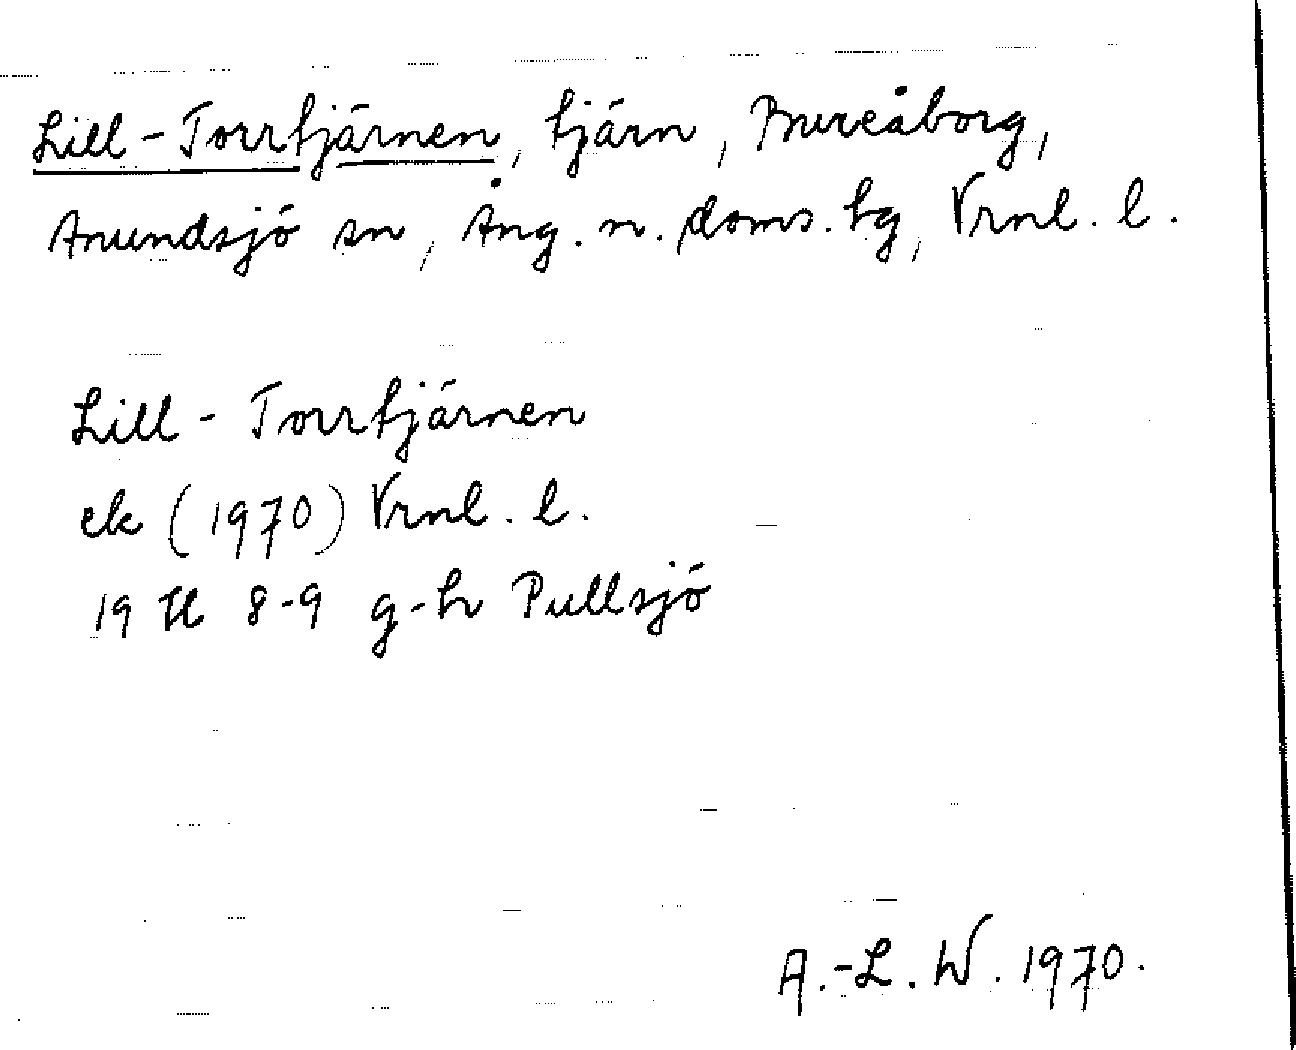 Lill-Torrtjärnen, tjärn, Bureåborg,
Anundsjö sn, Ång. n. doms. tg, Vrnl. l.
Lill-Torrtjärnen
ek (1970) Vrnl. l.
19 H 8-9 g-h Pullsjö
A.-L. W. 1970.